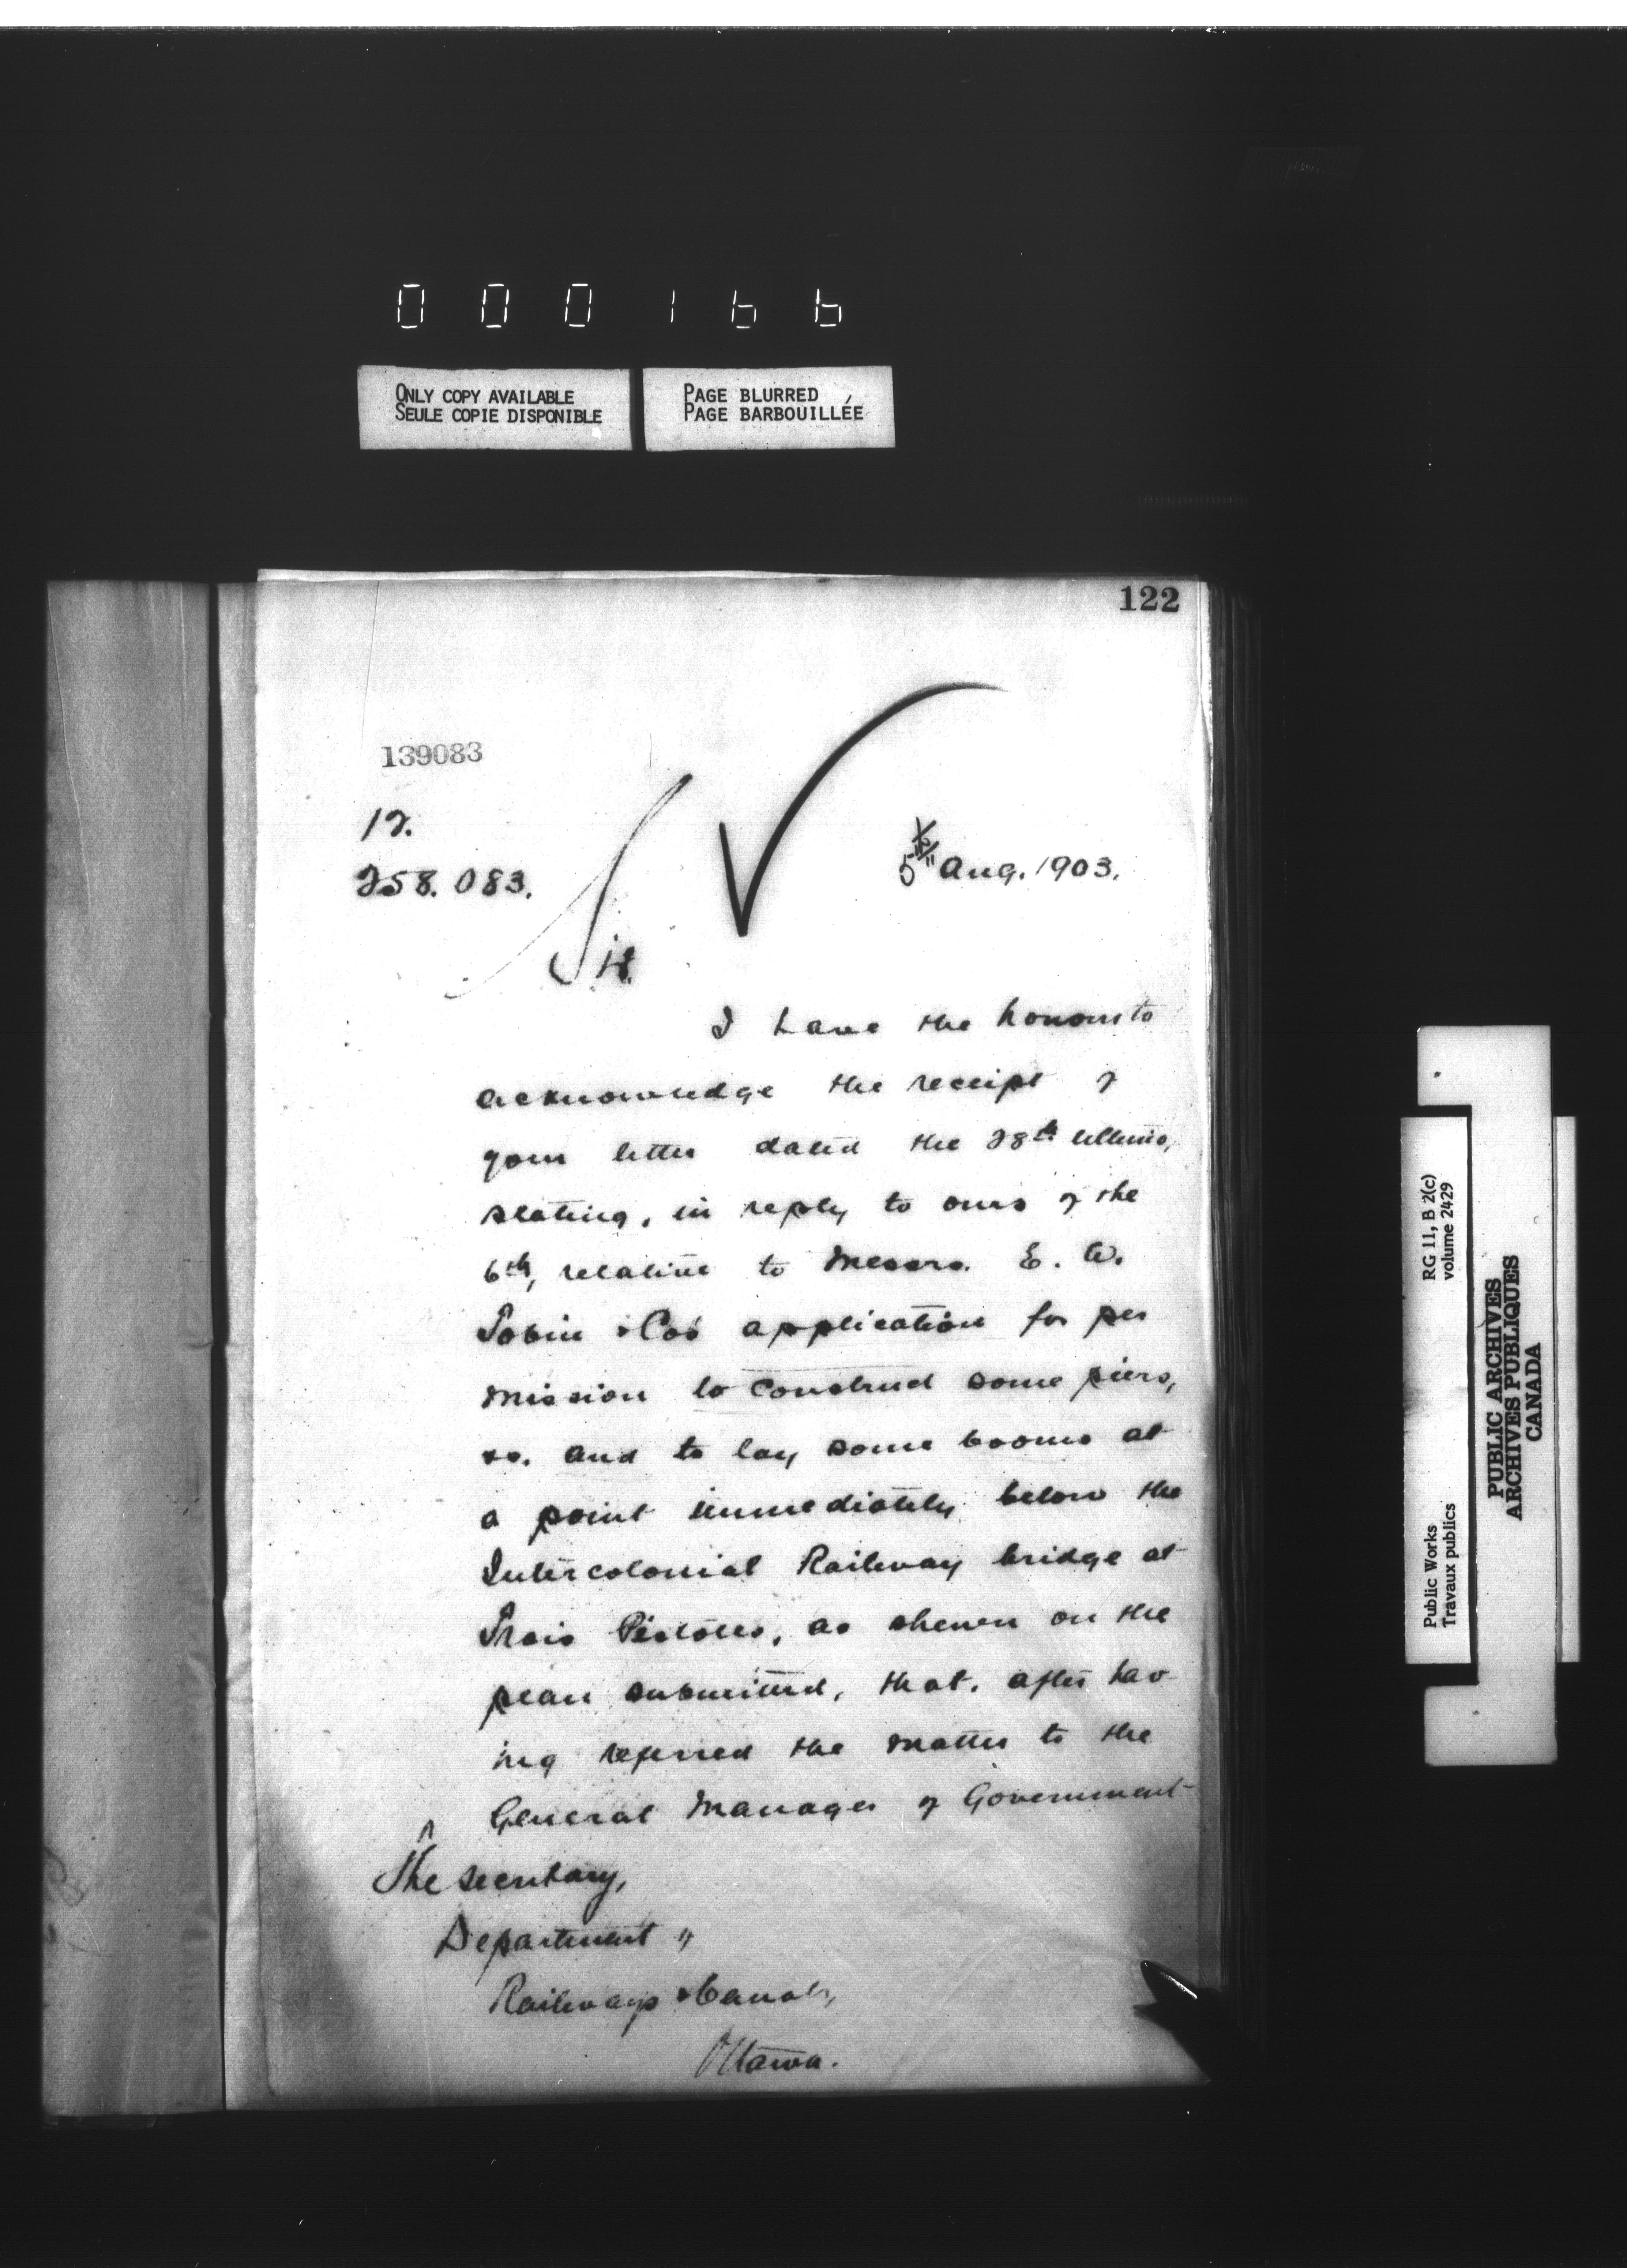 000166
ONLY COPY AVAILABLE
SEULE COPIE DISPONIBLE
PAGE BLURRED
PAGE BARBOUILLÉE
122
139083
12.
258.083.
5th Aug. 1903.
Sir.
I have the honour to
acknowledge the receipt of
your letter dated the 28th ultimo,
stating, in reply to ours of the
6th, relative to Messrs. E. W.
Tobin & Cos application for per
mission to construct some piers,
&c. and to lay some booms at
a point immediately below the
Intercolonial Railway bridge at
Trois Pistoles, as shewn on the
plan submitted, that, after hav-
ing referred the matter to the
General Manager of Government
The Secretary,
Department of
Railways & Canals,
Ottawa.
RG 11, B 2(c)
volume 2429
Public Works
Travaux publics
PUBLIC ARCHIVES
ARCHIVES PUBLIQUES
CANADA